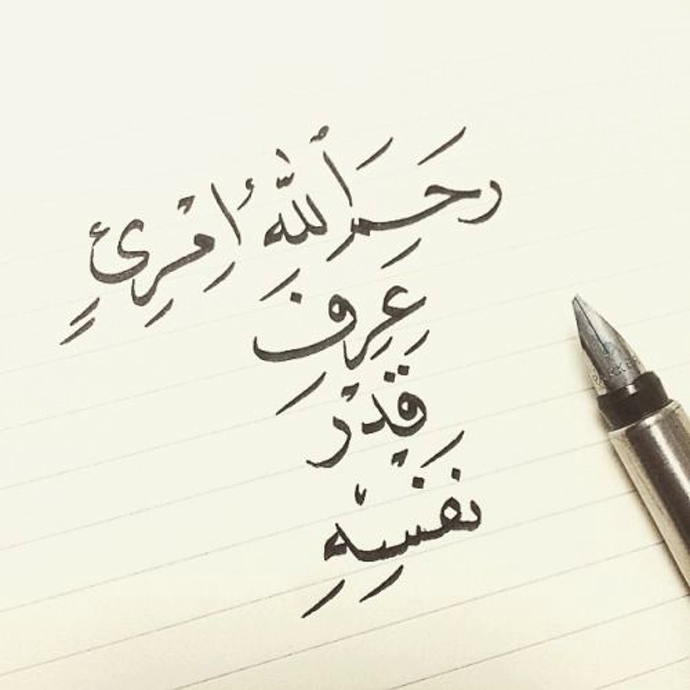 رَحِمَ اللّٰهِ اُمْرِئٍ
عِرِفِ
قَدْر
نَفْسِهِ